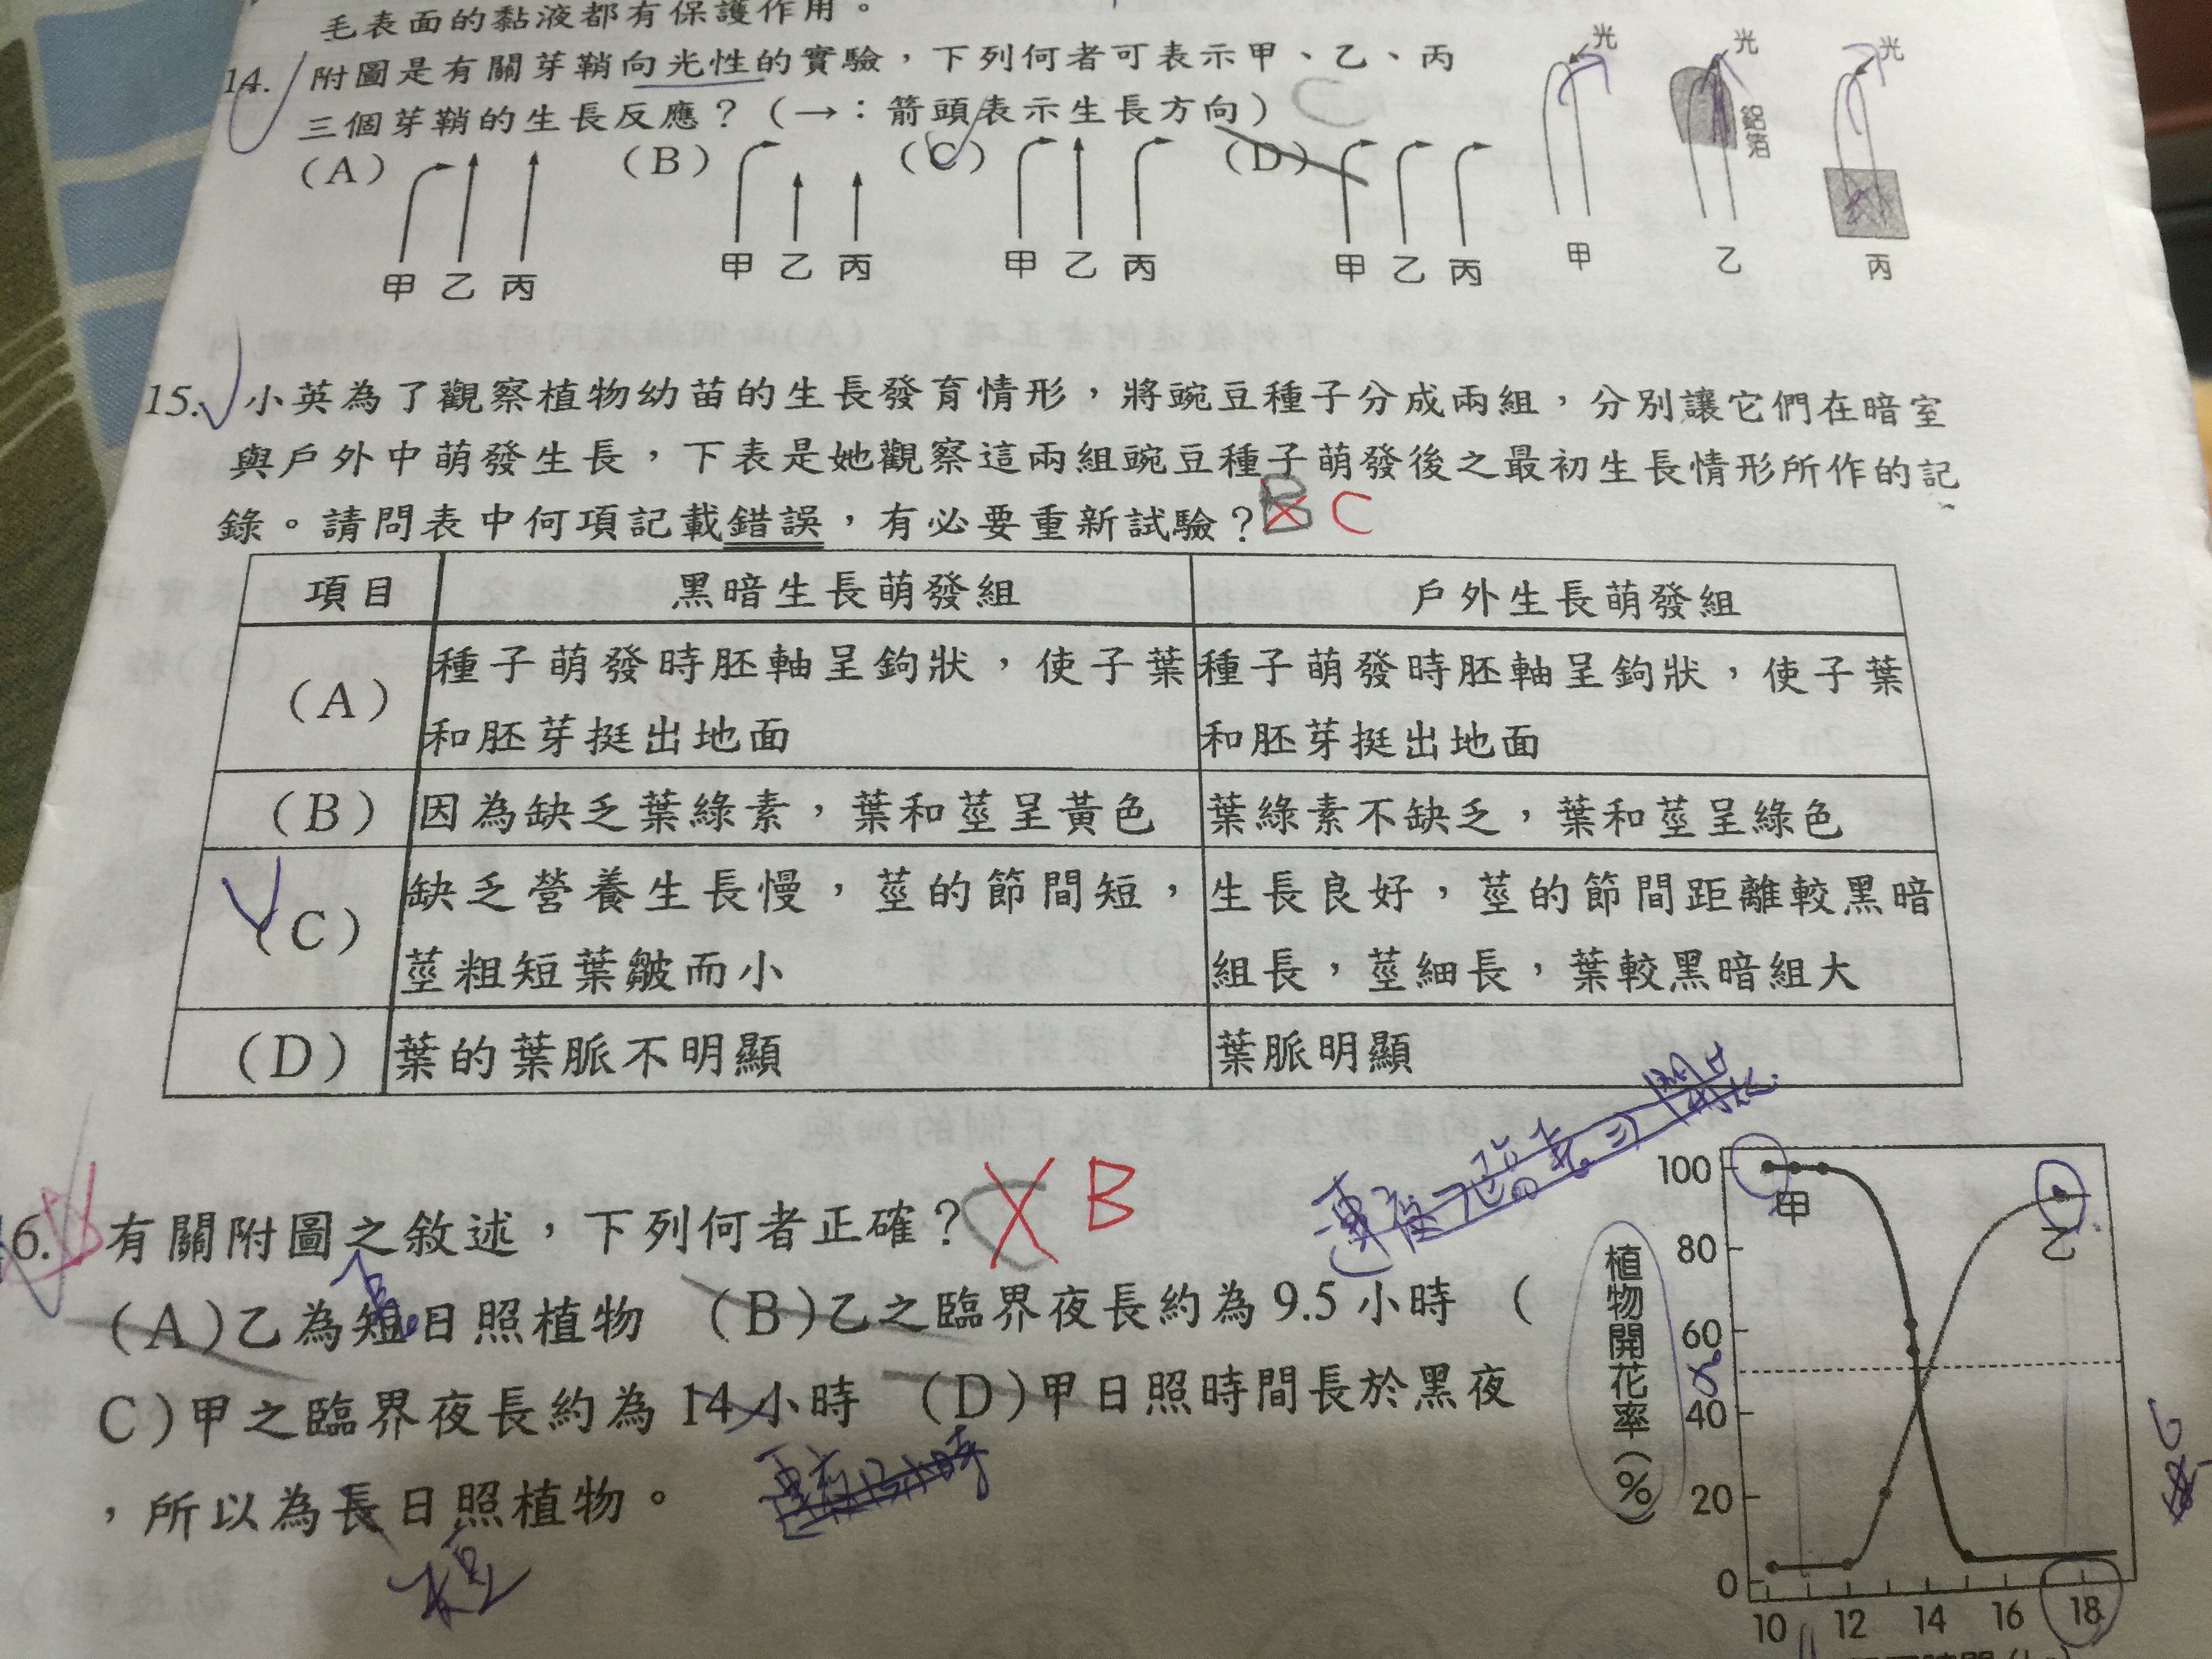 毛表面的黏液都有保護作用。
14. 附圖是有關芽鞘向光性的實驗，下列何者可表示甲、乙、丙
三個芽鞘的生長反應？（→：箭頭表示生長方向） C
(A) (B) (C) (D)
甲 乙 丙 甲 乙 丙 甲 乙 丙 甲 乙 丙
光 光 光
鋁箔
甲 乙 丙
15. 小英為了觀察植物幼苗的生長發育情形，將豌豆種子分成兩組，分別讓它們在暗室
與戶外中萌發生長，下表是她觀察這兩組豌豆種子萌發後之最初生長情形所作的記
錄。請問表中何項記載錯誤，有必要重新試驗？ B C
項目 黑暗生長萌發組 戶外生長萌發組
(A) 種子萌發時胚軸呈鉤狀，使子葉 種子萌發時胚軸呈鉤狀，使子葉
和胚芽挺出地面 和胚芽挺出地面
(B) 因為缺乏葉綠素，葉和莖呈黃色 葉綠素不缺乏，葉和莖呈綠色
(C) 缺乏營養生長慢，莖的節間短， 生長良好，莖的節間距離較黑暗
莖粗短葉皺而小 組長，莖細長，葉較黑暗組大
(D) 葉的葉脈不明顯 葉脈明顯
6. 有關附圖之敘述，下列何者正確？ C B
(A)乙為短日照植物 (B)乙之臨界夜長約為 9.5 小時 (
C)甲之臨界夜長約為 14 小時 (D)甲日照時間長於黑夜
，所以為長日照植物。
植物開花率(%)
100
80
60
40
20
0
甲
乙
10 12 14 16 18